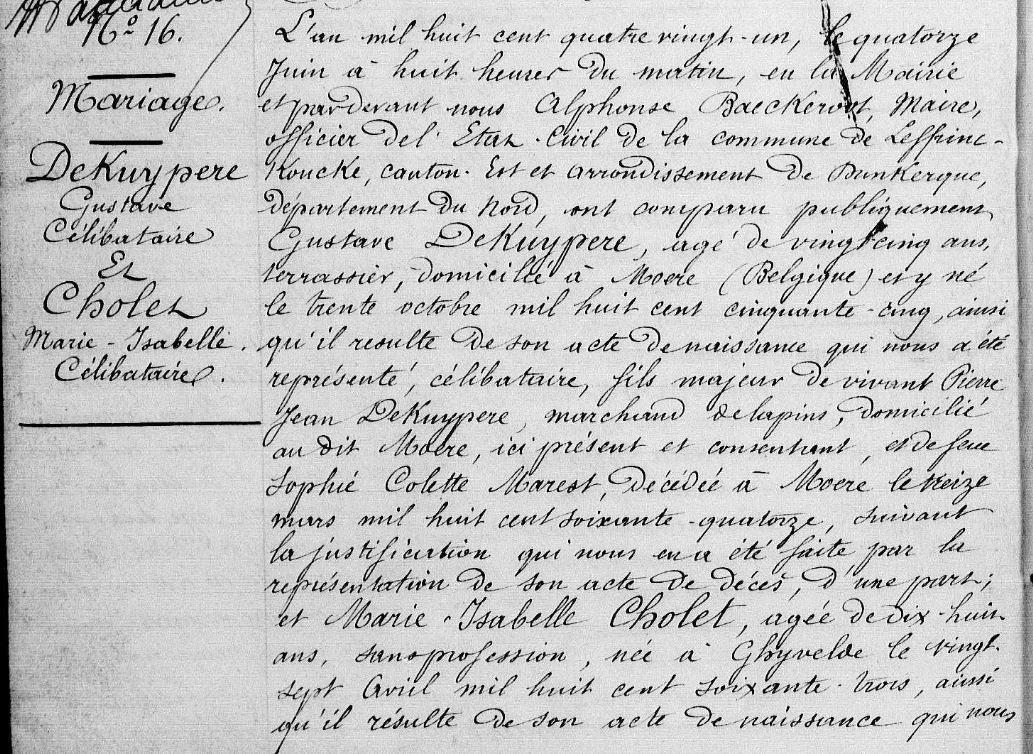 N° 16.
Mariage.
DeKuypere
Gustave
Célibataire
Et
Cholet
Marie-Isabelle.
Célibataire.
L'an mil huit cent quatre vingt-un, le quatorze
Juin à huit heures du matin, en la Mairie
et pardevant nous Alphonse Baeckeroot, Maire,
officier de l'Etat-Civil de la commune de Leffrinc-
Koucke, canton-Est et arrondissement de Dunkerque,
département du Nord, ont comparu publiquement
Gustave DeKuypere, agé de vingt cinq ans,
terrassier, domicilié à Moere (Belgique) et y né
le trente octobre mil huit cent cinquante-cinq, ainsi
qu'il resulte de son acte de naissance qui nous a été
représenté, célibataire, fils majeur de vivant Pierre
Jean DeKuypere, marchand de lapins, domicilié
au dit Moere, ici présent et consentant, et de feue
Sophie Colette Marest, décédée à Moere le treize
mars mil huit cent soixante-quatorze, suivant
la justification qui nous en a été faite par la
représentation de son acte de décès, d'une part;
et Marie-Isabelle Cholet, agée de dix-huit
ans, sans profession, née à Ghyvelde le vingt-
sept Avril mil huit cent soixante-trois, ainsi
qu'il résulte de son acte de naissance qui nous